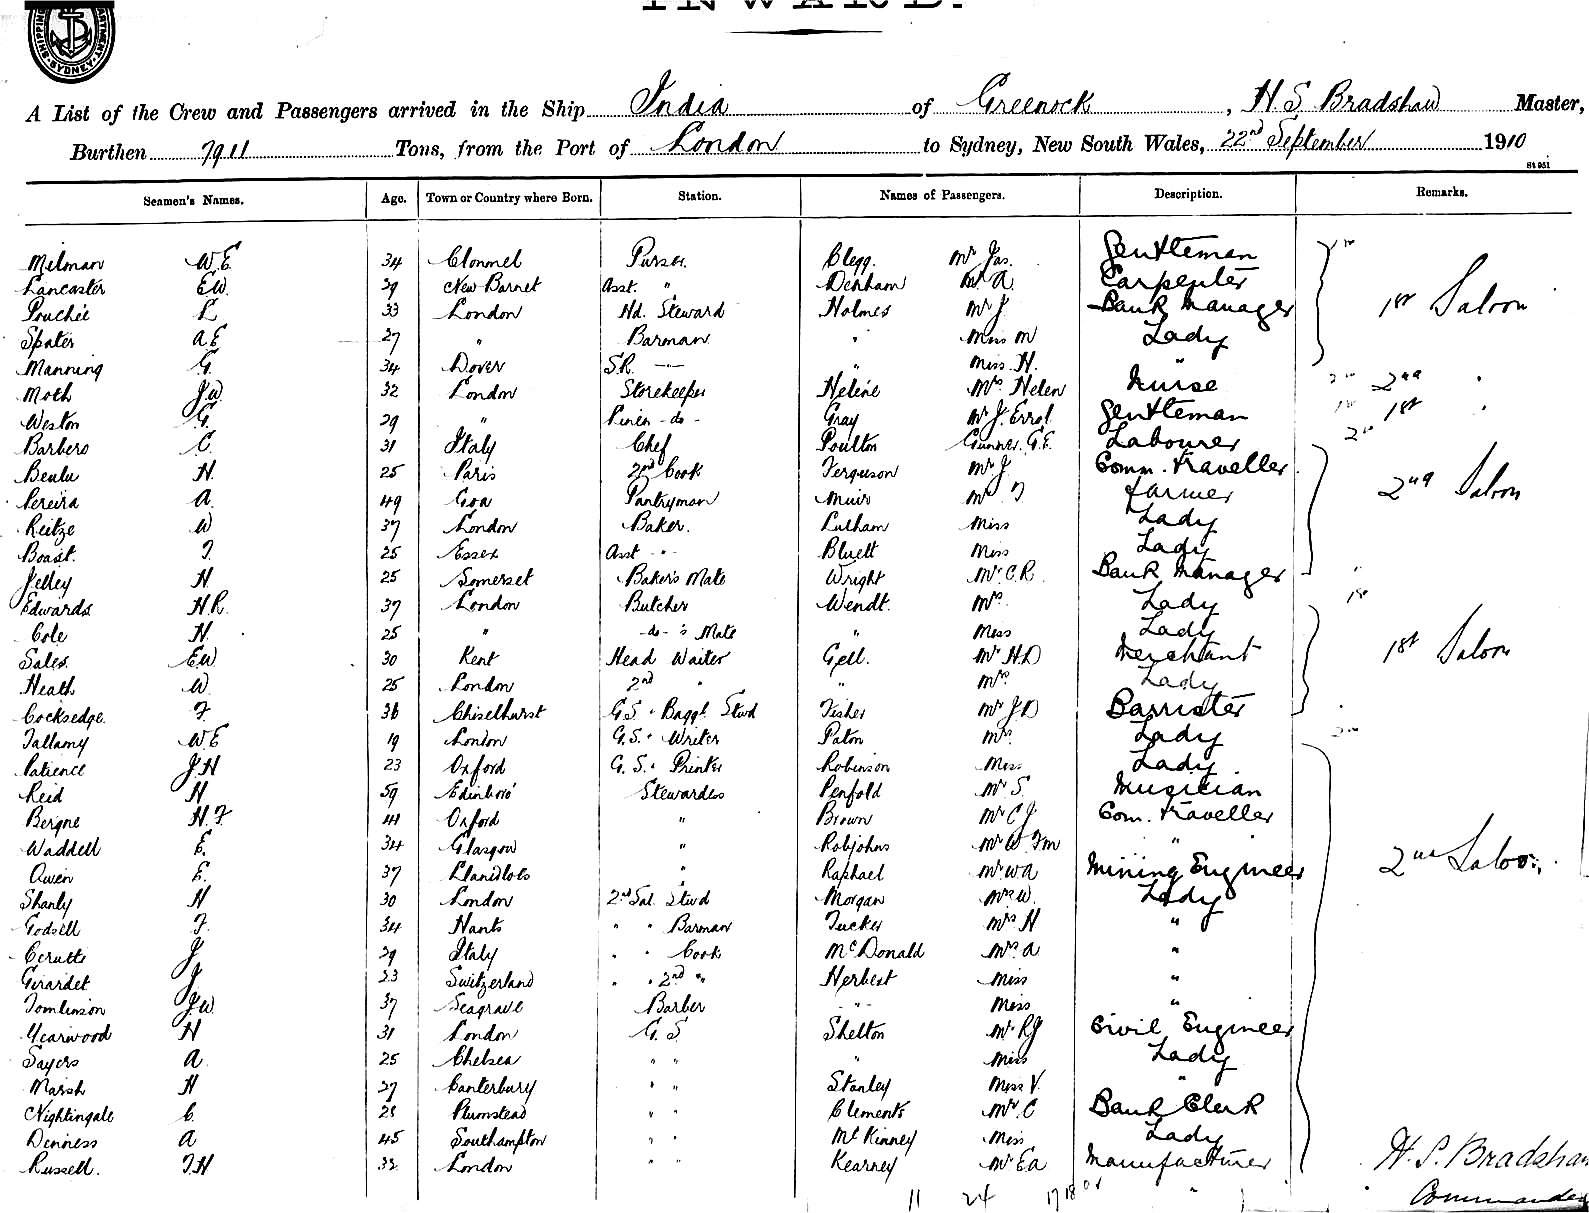 INWARD.
SYDNEY
A List of the Crew and Passengers arrived in the Ship India of Greenock, H. S. Bradshaw Master,
Burthen 7911 Tons, from the Port of London to Sydney, New South Wales, 22nd September 1910
St 951
Seamen's Names. Age. Town or Country where Born. Station. Names of Passengers. Description. Remarks.
Milman W.E. 34 Clonmel Purser. Clegg. Mr Jas. Gentleman
Lancaster E.W. 29 New Barnet Asst. " Denham Mr A. Carpenter
Pouchée L 33 London Hd. Steward Holmes Mr J. Bank Manager 1st Saloon
Spater A.E 27 " Barman " Miss M Lady
Manning G. 34 Dover S.R. -"- " Miss H. "
Moth J.W 32 London Storekeeper Helène Mrs Helen Nurse 2nd "
Weston G. 29 " Linen -do- Gray Mr J. Errol Gentleman 1st "
Barbero C. 31 Italy Chef Poulton Gunner. G.E. Labourer
Beulu H. 25 Paris 2nd Cook Ferguson Mr J. Comm. Traveller
Pereira A. 49 Goa Pantryman Muir Mr T Farmer 2nd Saloon
Reitze W 37 London Baker. Lulham Miss Lady
Boast. T. 25 Essex Asst -"- Bluett Miss Lady
Jelley H. 25 Somerset Baker's Mate Wright Mr C.R. Bank Manager
Edwards H.R. 37 London Butcher Wendt. Mrs Lady
Cole H. 25 " -do-'s Mate " Miss Lady
Sales. E.W 30 Kent Head Waiter Gell. Mr H.D Merchant 1st Saloon
Heath W. 25 London 2nd " " Mrs Lady
Cocksedge. F. 36 Chiselhurst G.S. Bagg. Stwd Fisher Mr J.D Barrister
Tallamy W.E 19 London G.S. Writer Paton Mrs Lady
Patience J.H 23 Oxford G.S. Printer Robinson Miss Lady
Reid H 59 Edinboro' Stewardess Penfold Mr S. Musician
Bergne H.F. 41 Oxford " Brown Mr C J. Com. Traveller
Waddell E. 34 Glasgow " Robjohns Mr W. Fm "
Owen E. 37 Llanidloes " Raphael Mr W A Mining Engineer 2nd Saloon
Shanly H 30 London 2nd Sal. Stwd Morgan Mrs W. Lady
Godsell F. 34 Hants " " Barman Tucker Mrs H "
Cerutti J 29 Italy " " Cook McDonald Mrs A "
Girardet J 23 Switzerland " " 2nd " Herbert Miss "
Tomlinson J.W 37 Seagrave Barber -"- Miss "
Yearwood H 31 London G.S. Shelton Mr R J Civil Engineer
Sayers A 25 Chelsea " " " Miss Lady
Marsh H 27 Canterbury " " Stanley Miss V. "
Nightingale C. 28 Plumstead " " Clements Mr C Bank Clerk
Denness A 45 Southampton " " McKinney Miss Lady
Russell. T.H London " " Kearney Mr E A Manufacturer
H. S. Bradshaw
Commander
11 24 17 18